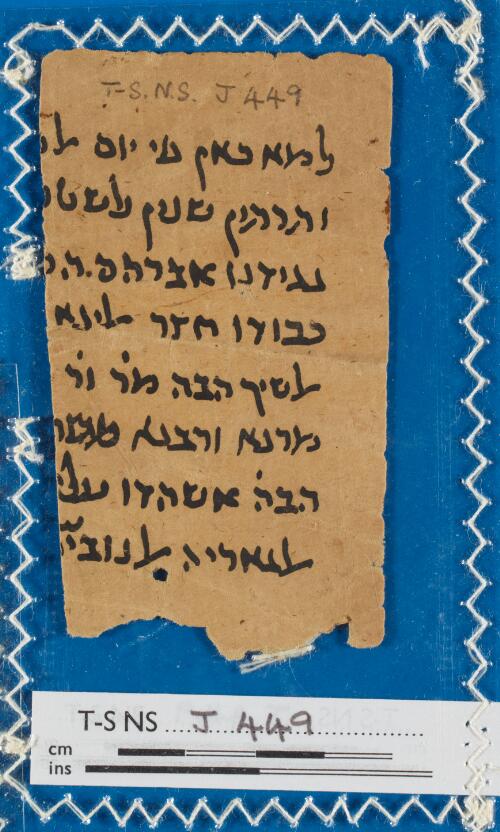 T-S.N.S. J 449
למא כאן פי יום
ותרתין שנין לשטר
נגידנו אברהם הח
כבודו חצר אלינא
אלשיך הבה מר ור
מרנא ורבנא
הבה אשהדו עלי
אלגאריה אלנוביה
T-S NS J 449
cm
ins